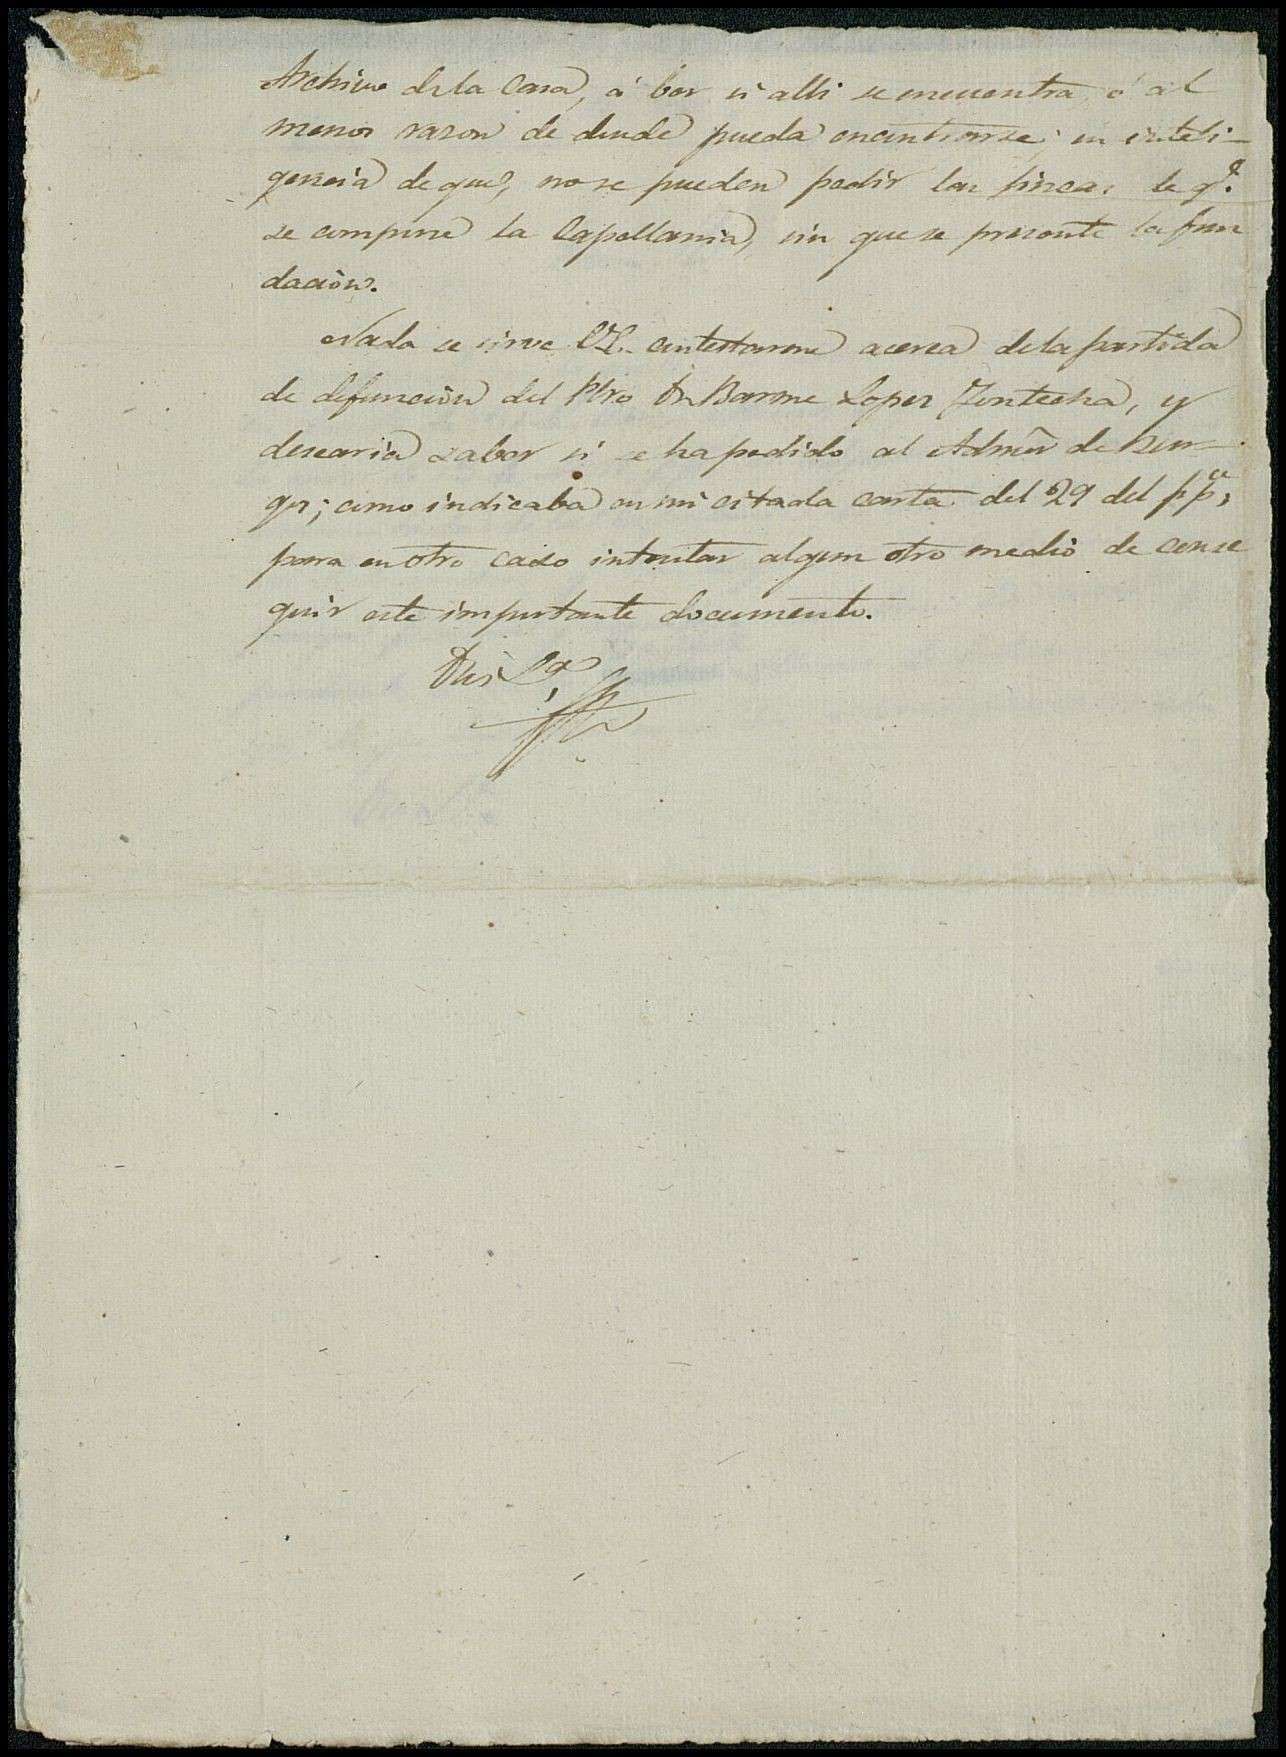 Archivo de la Casa, á ber si alli se encuentra ó al
menos razon de donde pueda encontrarse; en inteli-
gencia de que, no se pueden pedir las fincas de qe.
se compone la Capellania, sin que se presente la fun
dacion.
Nada se sirve V.S. contestarme acerca de la partida
de defuncion del Pbro Dn Barme Lopez Fontecha, y
desearia saber si se ha pedido al Admor de Bur-
gos; como indicaba en mi citada carta del 29 del pp,
para en otro caso intentar algun otro medio de conse
guir este importante documento.
Dios